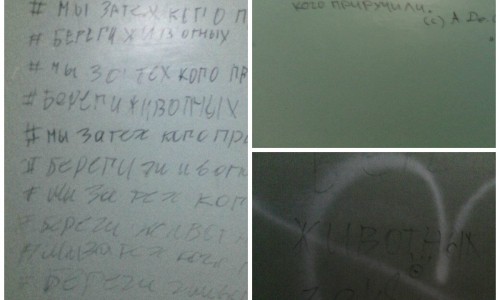 # МЫ ЗА ТЕХ КЕГО П
# БЕРЕГИ ЖИВОТНЫХ
# МЫ ЗА ТЕХ КОГО ПР
# БЕРЕГИ ЖИВОТНЫХ
# МЫ ЗА ТЕХ КОГО ПРО
# БЕРЕГИ ЖИВОТН
# МЫ ЗА ТЕХ КОГ
# БЕРЕГИ ЖИВОТН
# МЫ ЗА ТЕХ КОГО
# БЕРЕГИ ЖИВО
КОГО ПРИРУЧИЛИ.
(с) А
ЖИВОТНЫХ